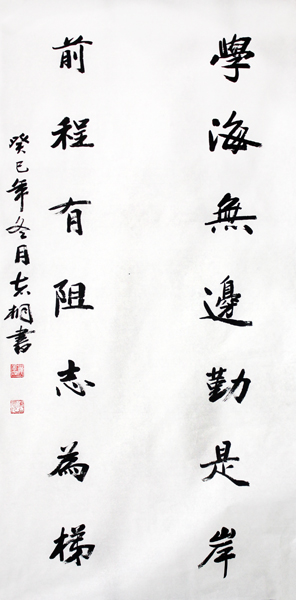 學海無邊勤是岸
前程有阻志為梯
癸巳年冬月志桐書